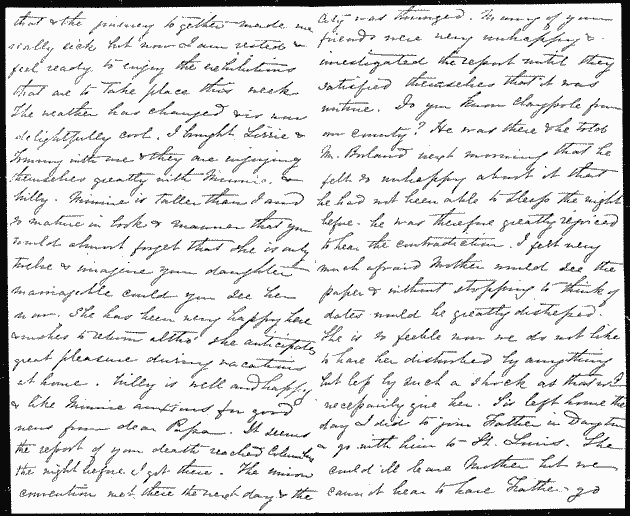 that & the journey together made me
really sick but now I am rested &
feel ready to enjoy the exhibitions
that are to take place this week
The weather has changed & is now
delightfully cool. I brought Lizzie &
Tommy with me & they are enjoying
themselves greatly with Minnie &
Willy. Minnie is taller than I and
so mature in look & manner that you
would almost forget that she is only
twelve & imagine your daughter
marriageable could you see her
now. She has been very happy here
& wishes to return altho' she anticipates
great pleasure during vacations
at home. Willy is well and happy
& like Minnie anxious for good
news from dear Papa. It seems
the report of your death reached Columbus
the night before I got there. The union
convention met there the next day & the
city was thronged. So many of your
friends were very unhappy &
investigated the report until they
satisfied themselves that it was
untrue. Do you know Claypoole from
our county? He was there & he told
Mr. Borland next morning that he
felt so unhappy about it that
he had not been able to sleep the night
before. he was therefore greatly rejoiced
to hear the contradiction. I felt very
much afraid Mother would see the
paper & without stopping to think of
dates would be greatly distressed.
She is so feeble now we do not like
to have her disturbed by anything
but less by such a shock as that wd
necessarily give her. Sis left home the
day I did to join Father in Dayton
& go with him to St. Louis. She
could ill leave Mother but we
cannot bear to have Father go